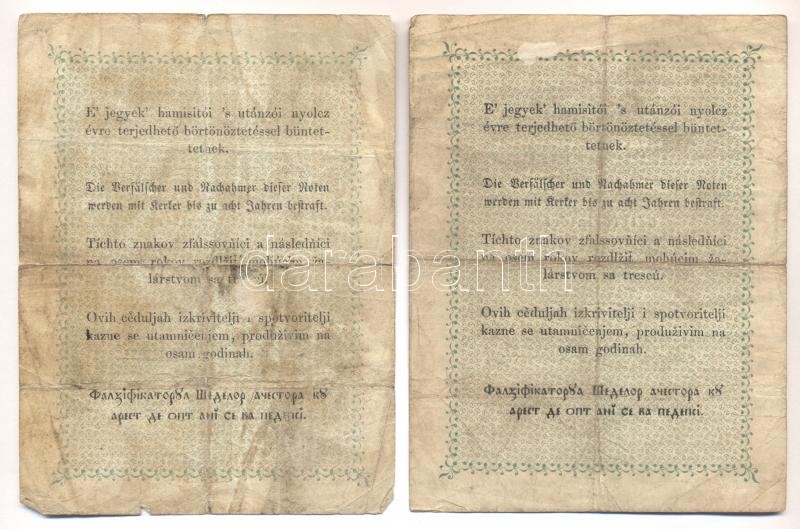 E' jegyek' hamisitói 's utánzói nyolcz
évre terjedhető börtönöztetéssel büntet-
tetnek.
Die Verfälscher und Nachahmer dieser Noten
werden mit Kerker bis zu acht Jahren bestraft.
Tíchto znakov zfalssovňíci a následňíci
na osem rokov rozdlžiť mohúcim
lárstvom sa trescú.
Ovih cěduljah izkrivitelji i spotvoritelji
kazne se utamničenjem, produživim na
osam godinah.
Фалзіфікаторꙋл Шеделор ачестора кꙋ
арест де опт анї се ва педепсі.
E' jegyek' hamisitói 's utánzói nyolcz
évre terjedhető börtönöztetéssel büntet-
tetnek.
Die Verfälscher und Nachahmer dieser Noten
werden mit Kerker bis zu acht Jahren bestraft.
Tíchto znakov zfalssovňíci a následňíci
na osem rokov rozdlžiť mohúcim ža-
lárstvom sa trescú.
Ovih cěduljah izkrivitelji i spotvoritelji
kazne se utamničenjem, produživim na
osam godinah.
Фалзіфікаторꙋл Шеделор ачестора кꙋ
арест де опт анї се ва педепсі.
darabanth